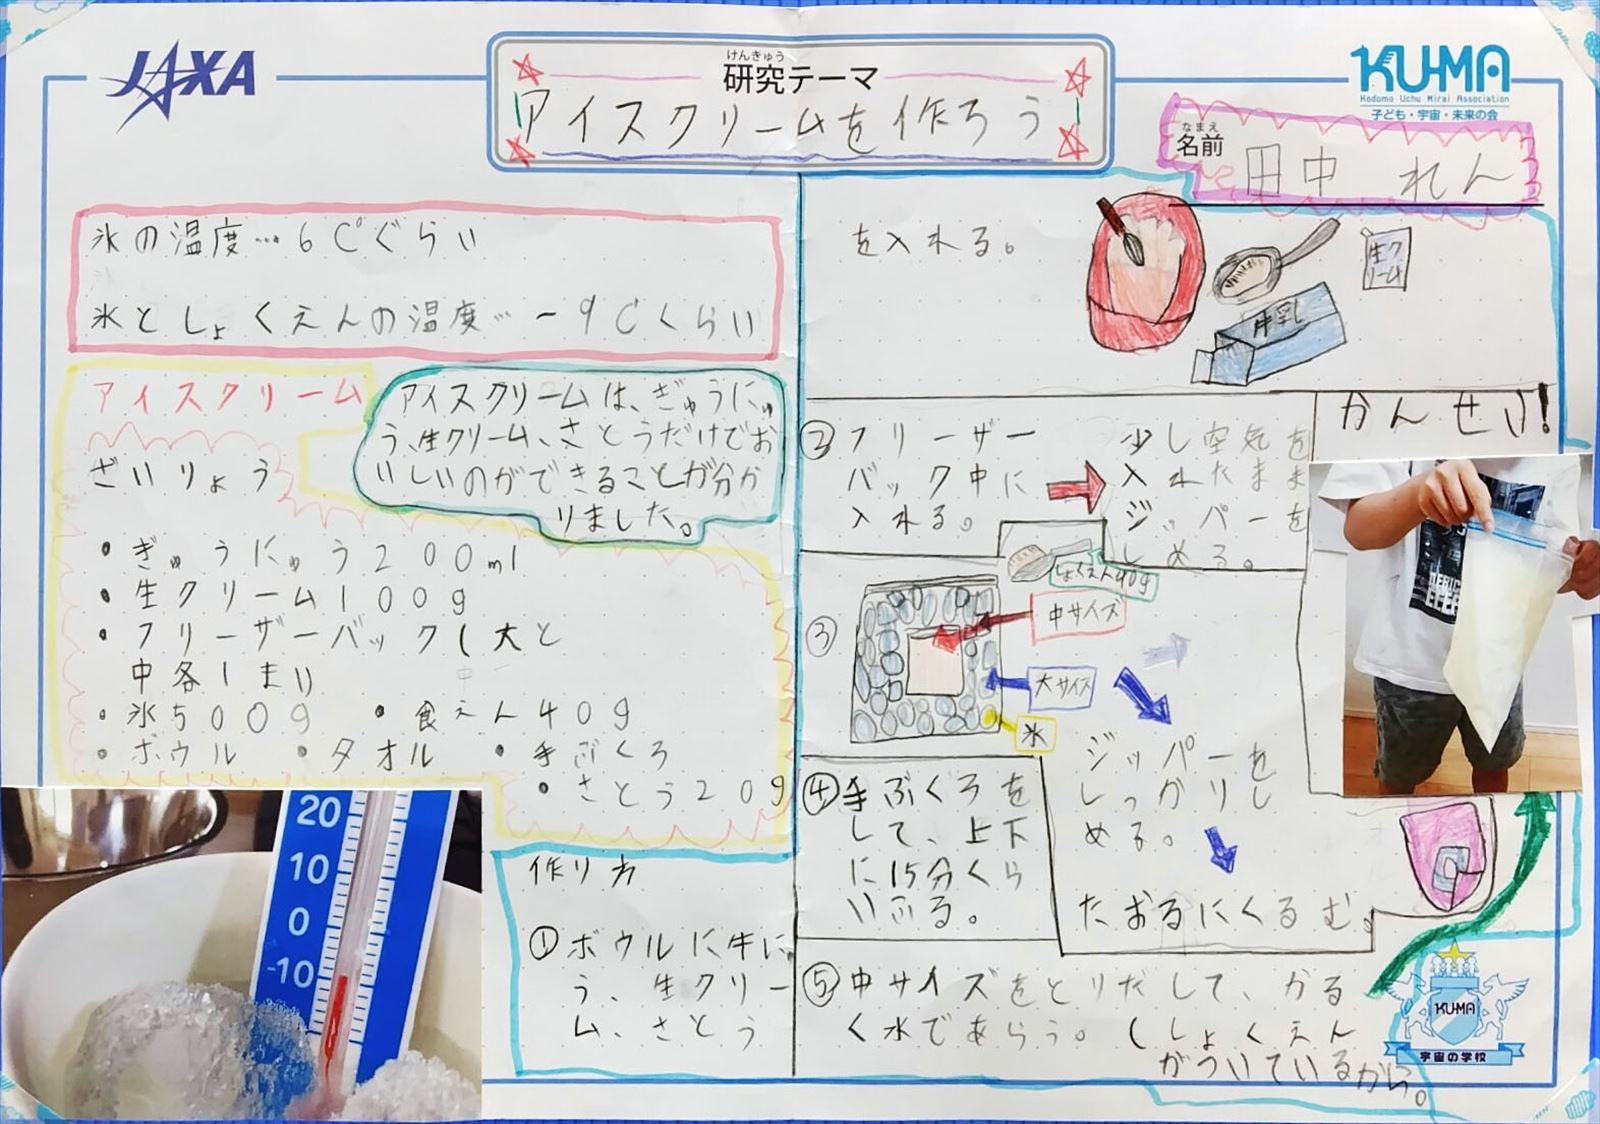 JAXA
けんきゅう
研究テーマ
アイスクリームを作ろう
KU-MA
Kodomo Uchu Mirai Association
子ども・宇宙・未来の会
なまえ
名前
田中 れん
氷の温度…6C°ぐらい
氷としょくえんの温度…-9℃くらい
アイスクリーム
ざいりょう
アイスクリームは、ぎゅうにゅ
う、生クリーム、さとうだけでお
いしいのができることが分か
りました。
・ぎゅうにゅう200ml
・生クリーム100g
・フリーザーバック(大と
中各1まい
・氷500g ・食えん40g
・ボウル ・タオル ・手ぶくろ
・さとう20g
20
10
0
-10
作り方
①ボウルに牛にゅ
う、生クリー
ム、さとう
を入れる。
生ク
リーム
牛乳
②フリーザー
バック中に
入れる。
少し空気を
入れたまま
ジッパーを
しめる。
かんせい!
③
しょくえん40g
中サイズ
大サイズ
氷
ジッパーを
しっかりし
める。
たおるにくるむ。
④手ぶくろを
して、上下
に15分くら
いふる。
⑤中サイズをとりだして、かる
く水であらう。(しょくえん
がついているから。
KU-MA
宇宙の学校